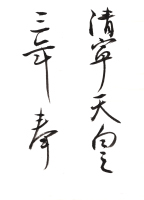 清寧天皇
三年奉